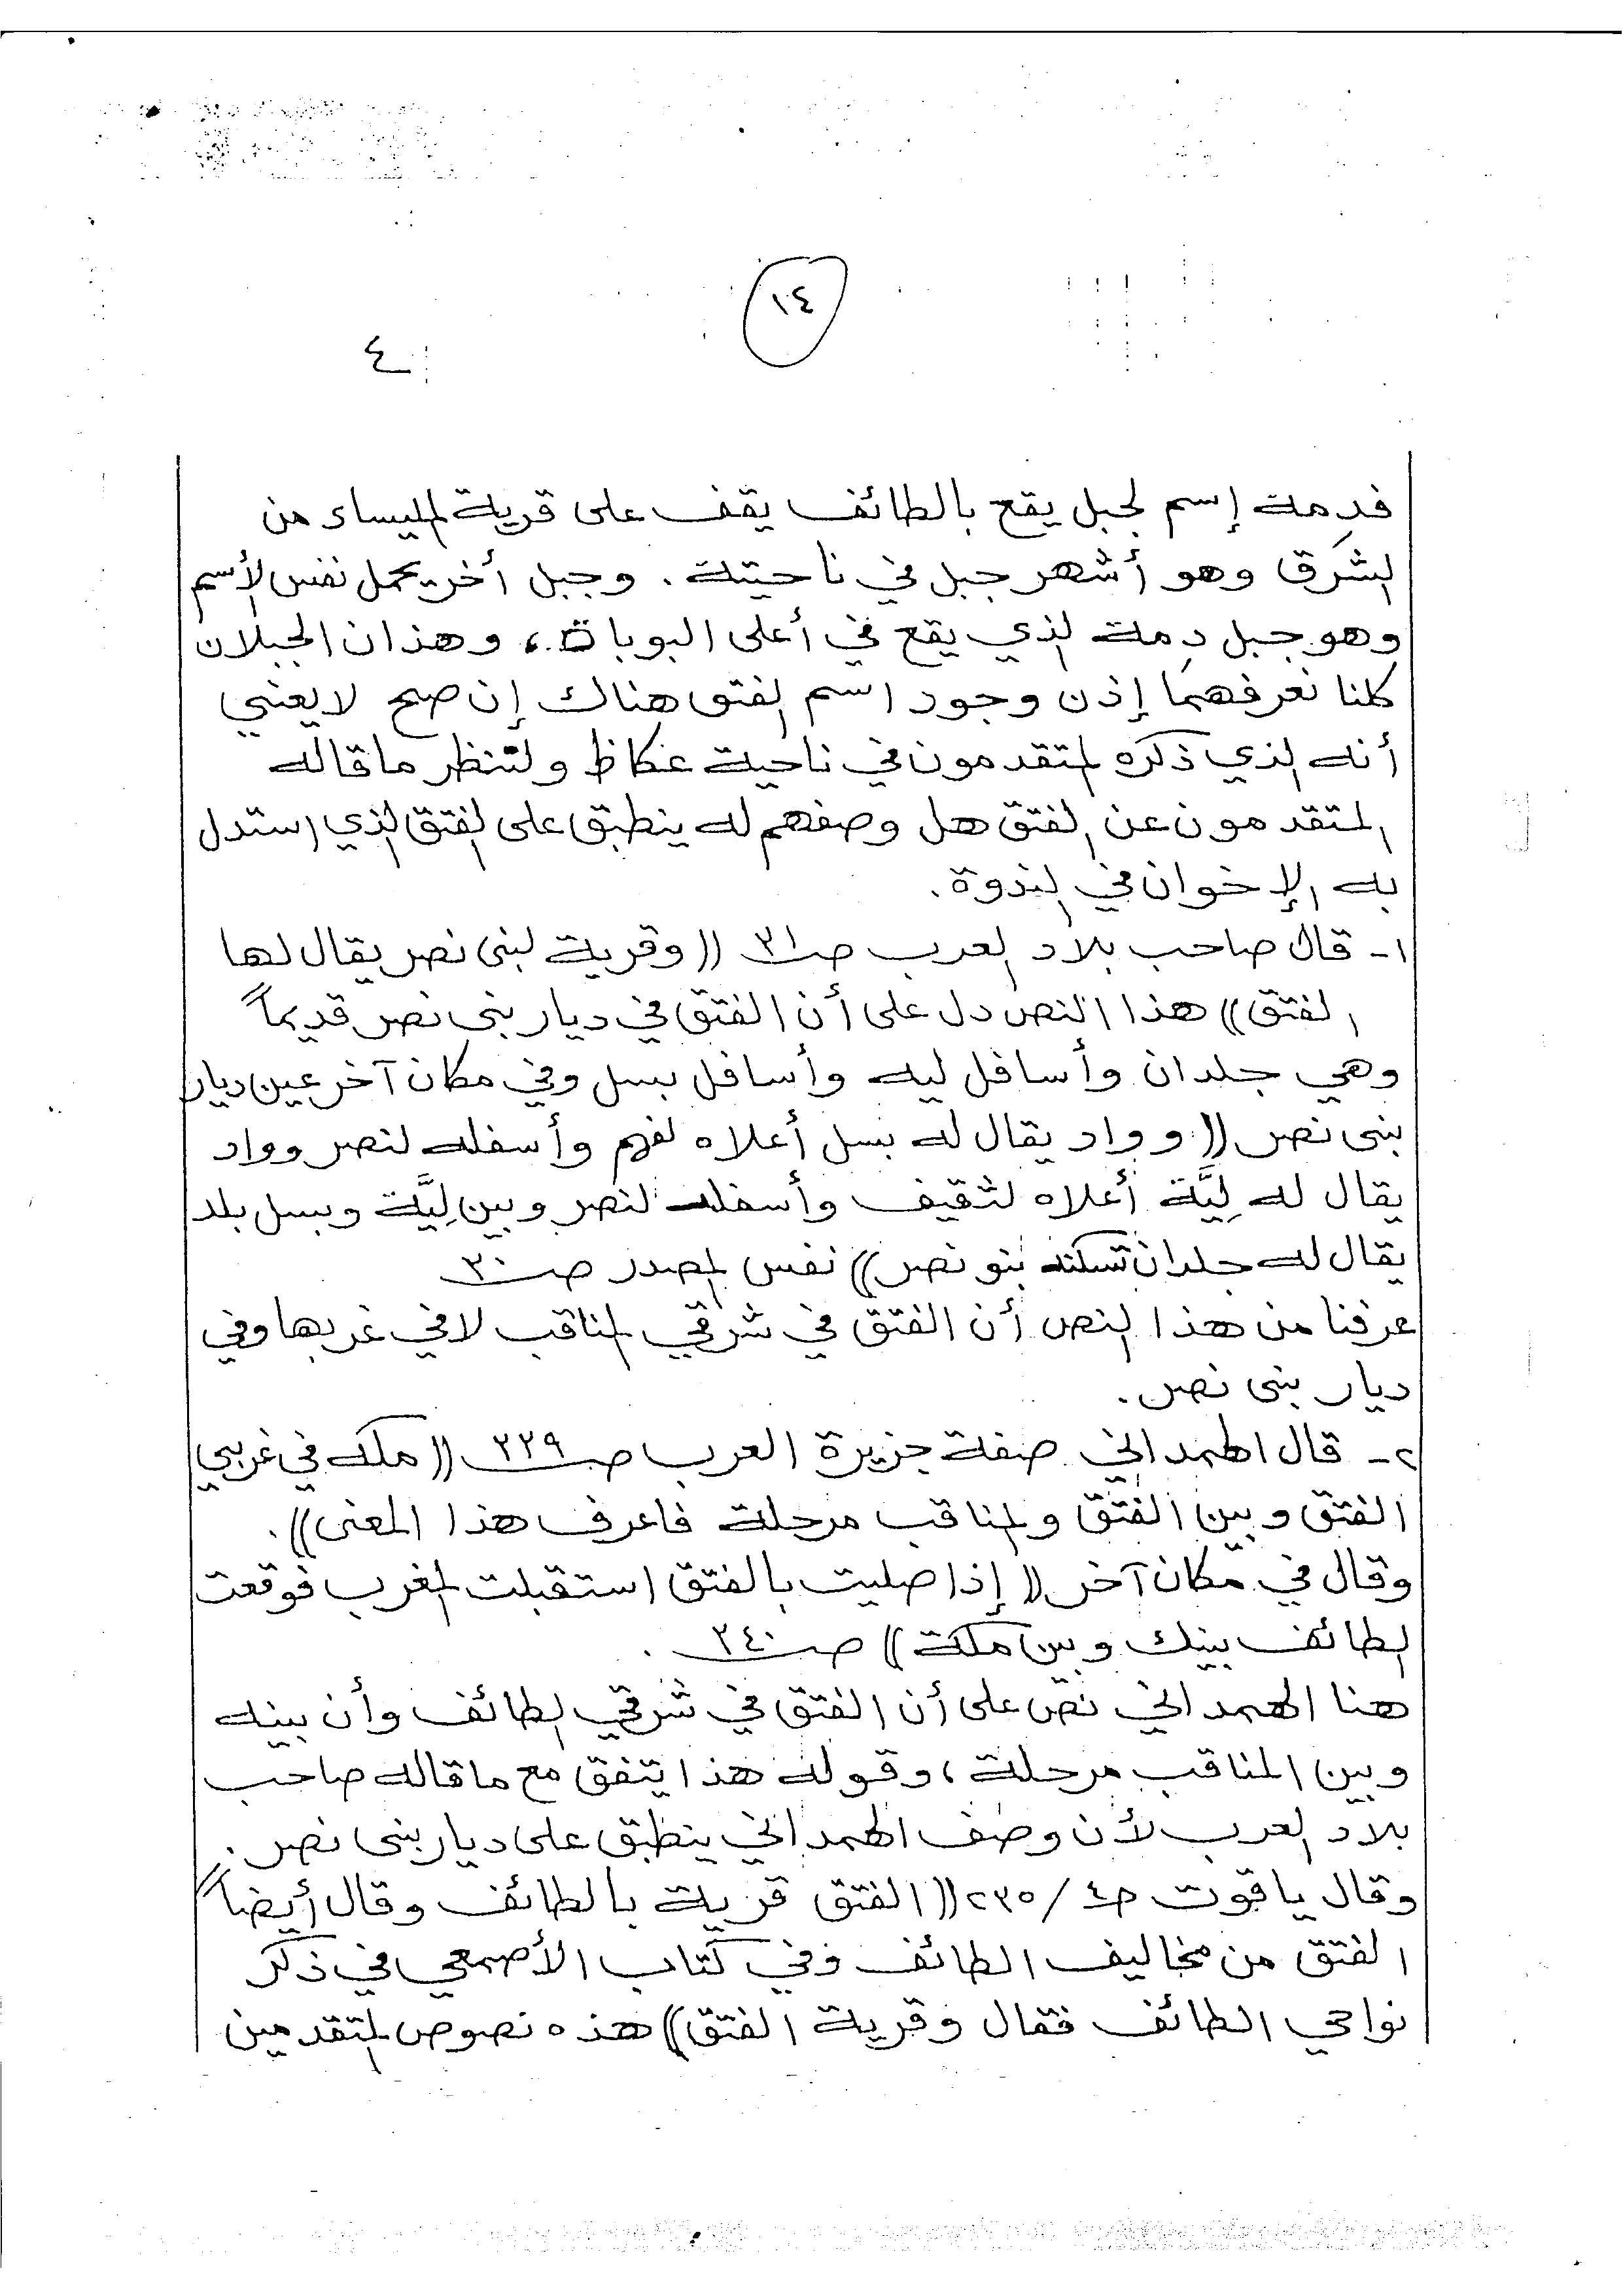 ١٤
٤
فدمة إسم لجبل يقع بالطائف يقف على قرية المليساء من
الشرق وهو أشهر جبل في ناحيته . وجبل أخر يحمل نفس الأسم
وهو جبل دمة الذي يقع في أعلى البوباة ، وهذان الجبلان
كلنا نعرفهما إذن وجود اسم الفتق هناك إن صح لا يعني
أنه الذي ذكره المتقدمون في ناحية عكاظ ولننظر ما قاله
المتقدمون عن الفتق هل وصفهم له ينطبق على الفتق الذي استدل
به الإخوان في الندوة .
١- قال صاحب بلاد العرب صـ٣١ ((وقرية لبنى نصر يقال لها
الفتق)) هذا النص دل على أن الفتق في ديار بنى نصر قديماً
وهي جلدان وأسافل ليه وأسافل بسل وفي مكان آخر عين ديار
بنى نصر ((وواد يقال له بسل أعلاه لفهم وأسفله لنصر وواد
يقال له لِيَّة أعلاه لثقيف وأسفله لنصر وبين لِيَّة وبسل بلد
يقال له جلدان تسكنه بنو نصر)) نفس المصدر صـ٣٠
عرفنا من هذا النص أن الفتق في شرقي المناقب لا في غربها وفي
ديار بنى نصر .
٢- قال الهمداني صفة جزيرة العرب صـ٣٣٩ ((مكه في غربي
الفتق وبين الفتق والمناقب مرحلة فاعرف هذا المعنى)) .
وقال في مكان آخر ((إذا صليت بالفتق استقبلت المغرب فوقعت
الطائف بينك وبين مكة)) صـ٣٤٠ .
هنا الهمداني نص على أن الفتق في شرقي الطائف وأن بينه
وبين المناقب مرحلة ، وقوله هذا يتفق مع ما قاله صاحب
بلاد العرب لأن وصف الهمداني ينطبق على ديار بنى نصر .
وقال ياقوت ج٤/٢٣٥ ((الفتق قرية بالطائف وقال أيضاً
الفتق من مخاليف الطائف وفي كتاب الأصمعي في ذكر
نواحي الطائف فقال وقرية الفتق)) هذه نصوص المتقدمين